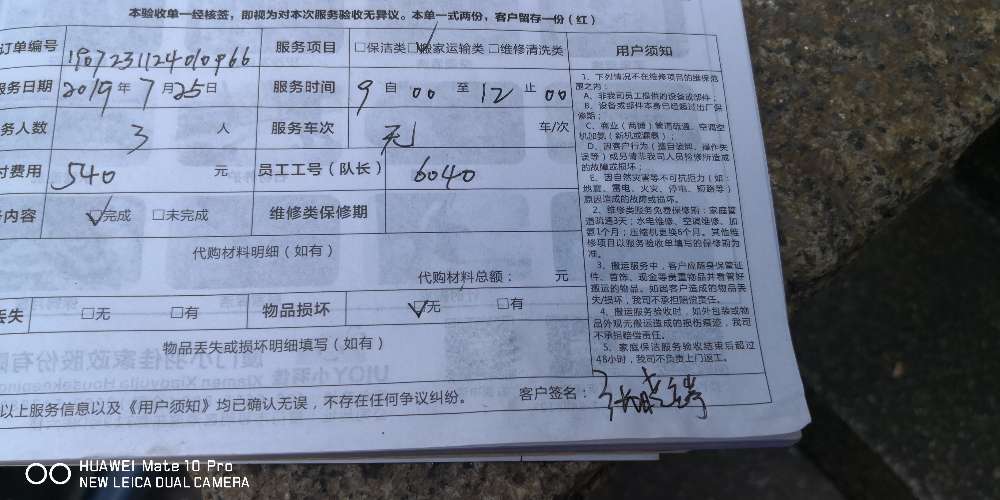 本验收单一经核签，即视为对本次服务验收无异议。本单一式两份，客户留存一份（红）
订单编号 服务项目 □保洁类 ☑搬家运输类 □维修清洗类 用户须知
务日期 2019年7月25日 服务时间 9自00至12止00
务人数 3人 服务车次 无 车/次
付费用 540元 员工工号（队长） 6040
内容 ☑完成 □未完成 维修类保修期
代购材料明细（如有）
代购材料总额： 元
丢失 □无 □有 物品损坏 ☑无 □有
物品丢失或损坏明细填写（如有）
以上服务信息以及《用户须知》均已确认无误，不存在任何争议纠纷。 客户签名：
1、下列情况不在维修项目的维保范
围之内：
A、非我司员工提供的设备或部件；
B、设备或部件本身已经超过出厂保
修期；
C、商业（商铺）管道疏通、空调空
机加氨（新机或漏氨）；
D、因客户行为（擅自破损、操作失
误等）或另请非我司人员检修所造成
的故障或损坏；
E、因自然灾害等不可抗拒力（如：
地震、雷电、火灾、停电、短路等）
原因造成的故障或损坏。
2、维修类服务免费保修期：家庭管
道疏通3天；水电维修、空调维修、加
氨1个月；压缩机更换6个月。其他维
修项目以服务验收单填写的保修期为
准。
3、搬运服务中，客户应随身保管证
件、首饰、现金等贵重物品并看管好
搬运的物品。如因客户造成的物品丢
失/损坏，我司不承担赔偿责任。
4、搬运服务验收时，如外包装或物
品外观无搬运造成的损伤痕迹，我司
不承担赔偿责任。
5、家庭保洁服务验收结束后超过
48小时，我司不负责上门返工。
HUAWEI Mate 10 Pro
NEW LEICA DUAL CAMERA